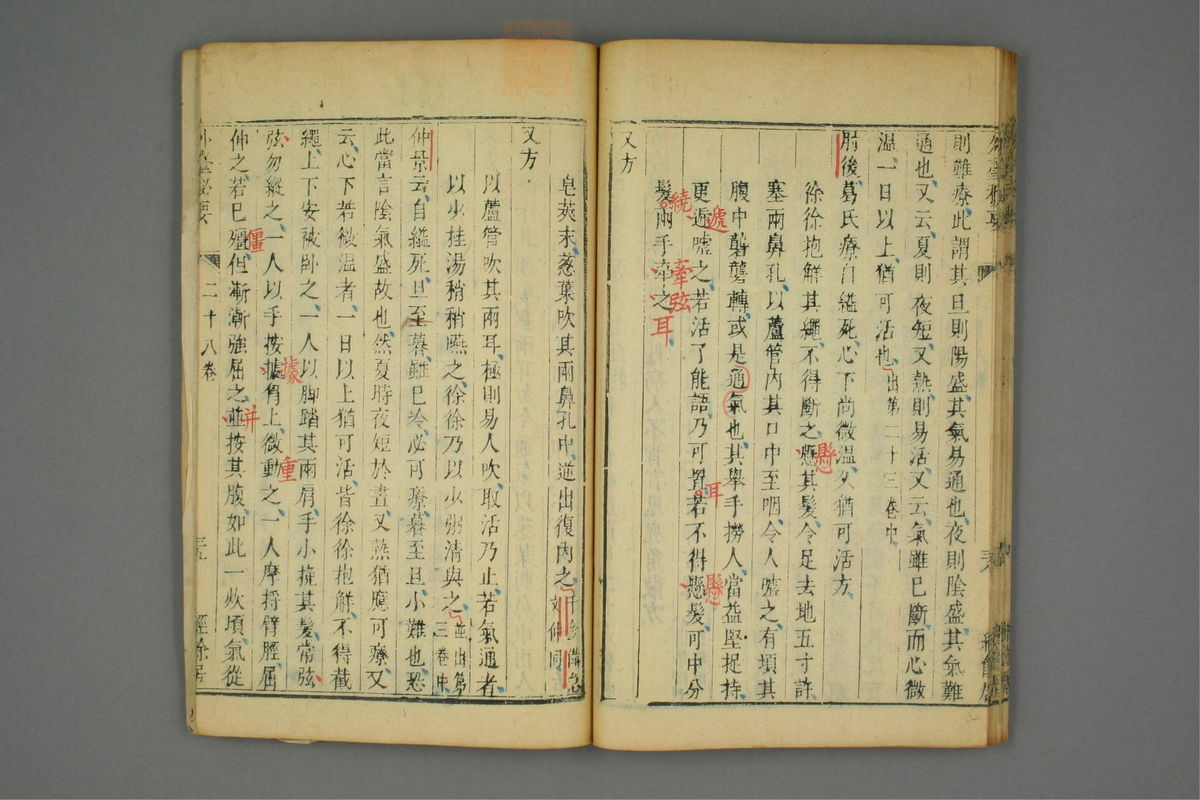 則難療此謂其旦則陽盛其氣易通也夜則陰盛其氣難
通也又云夏則夜短又熱則易活又云氣雖巳斷而心微
温一日以上猶可活也出第二十三卷中
肘後葛氏療自縊死心下尚微温久猶可活方
徐徐抱解其繩不得斷之懸其髮令足去地五寸許
塞兩鼻孔以蘆管内其口中至咽令人噓之有頃其
腹中礱礱轉或是通氣也其舉手撈人當益堅捉持
更遞噓之若活了能語乃可置若不得懸髮可中分
髮兩手牽之
又方
皂莢末葱葉吹其兩鼻孔中逆出復内之千金備急文仲同
又方
以蘆管吹其兩耳極則易人吹取活乃止若氣通者
以少桂湯稍稍嚥之徐徐乃以少粥清與之並出第三卷中
仲景云自縊死旦至暮雖巳冷必可療暮至旦小難也恐
此當言陰氣盛故也然夏時夜短於晝又熱猶應可療又
云心下若微温者一日以上猶可活皆徐徐抱解不得截
繩上下安被卧之一人以脚踏其兩肩手小挽其髮常弦
弦勿縱之一人以手按據胷上微動之一人摩捋臂脛屈
伸之若巳殭但漸漸強屈之並按其腹如此一炊頃氣從
外臺秘要
二十八卷
經餘居
遞
繞
牽弦
耳
懸
耳
懸
據
重
僵
并